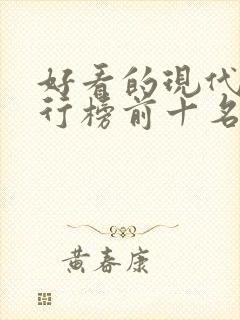 好看的现代
行榜前十名
黄春康